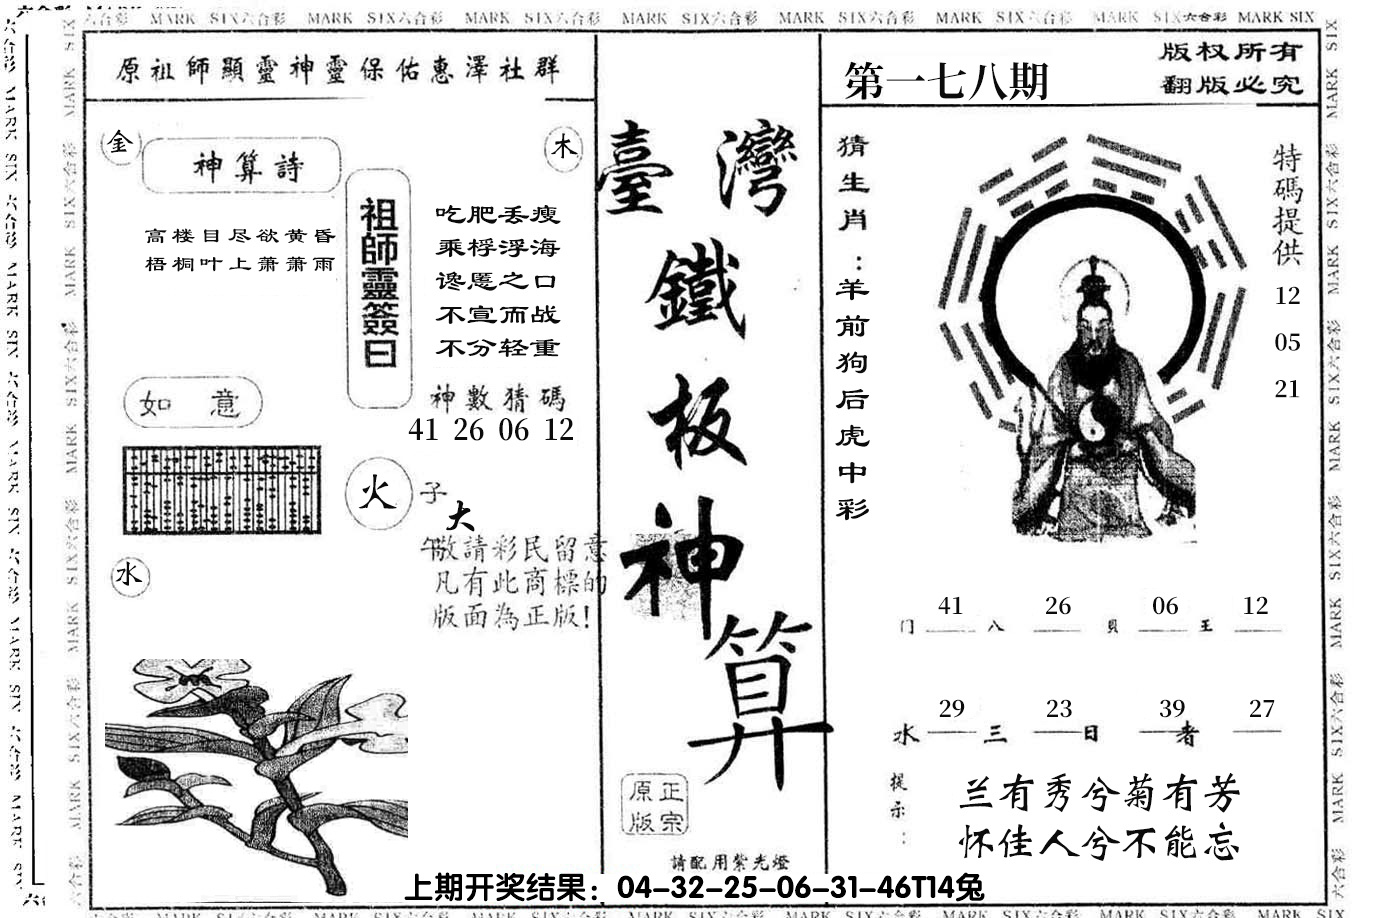 MARK SIX六合彩 MARK SIX六合彩 MARK SIX六合彩 MARK SIX六合彩 MARK SIX六合彩 MARK SIX六合彩 MARK SIX六合彩 MARK SIX
原祖師顯靈神靈保佑惠澤社群
金
神算詩
木
高楼目尽欲黄昏
梧桐叶上萧萧雨
祖師靈簽曰
吃肥丢瘦
乘桴浮海
谗慝之口
不宣而战
不分轻重
神數猜碼
41 26 06 12
如意
火
水
子
大
午
敬請彩民留意
凡有此商標的
版面為正版!
臺灣
鐵
板
神
算
正宗
原版
請配用紫光燈
第一七八期
版权所有
翻版必究
猜生肖:羊前狗后虎中彩
特碼提供
12
05
21
门 41 八 26 貝 06 王 12
水 29 三 23 日 39 者 27
提示:
兰有秀兮菊有芳
怀佳人兮不能忘
上期开奖结果：04-32-25-06-31-46T14兔